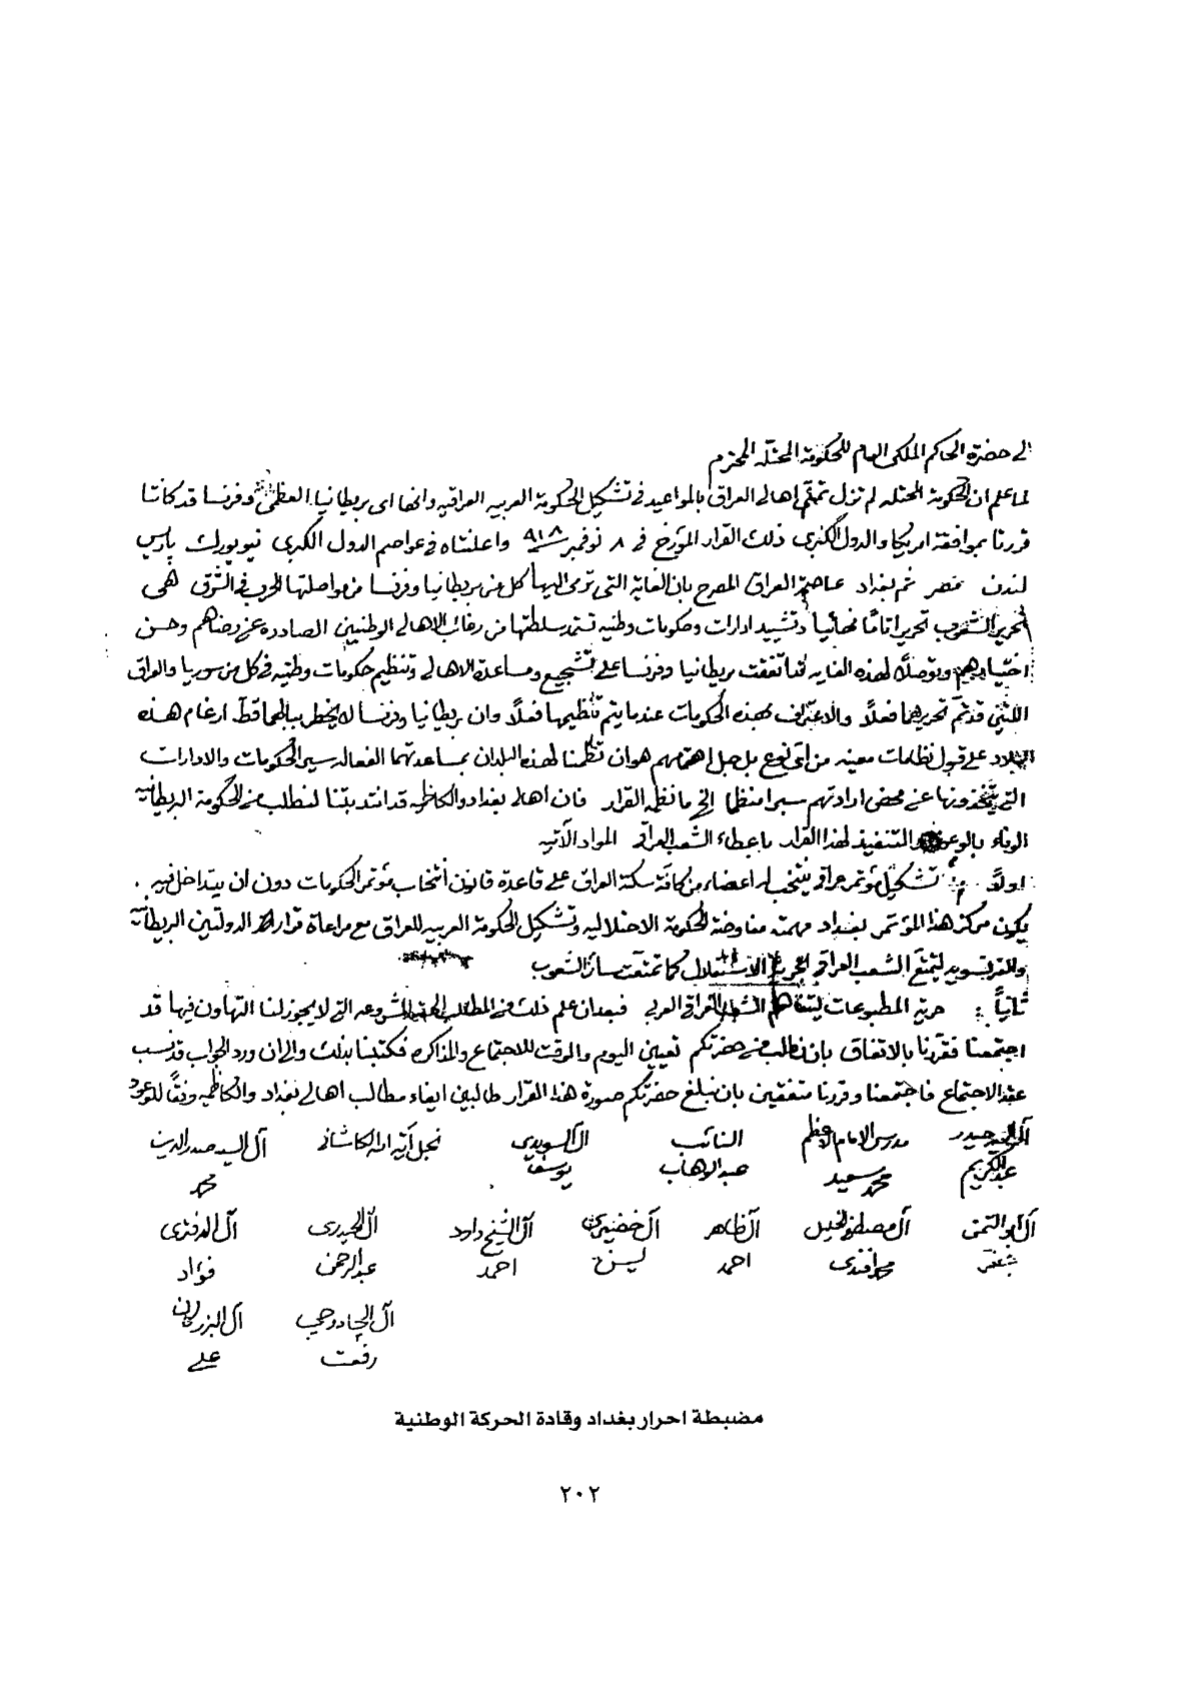 الى حضرة الحاكم الملكي العام للحكومة المحتله المحترم
لما علم ان الحكومة المحتله لم تزل تمتع اهالى العراق بالمواعيد فى تشكيل الحكومة العربيه العراقيه وانها اى بريطانيا العظمى وفرنسا قد كانتا
قررتا بموافقة امريكا والدول الكبرى ذلك القرار المؤرخ فى ٨ نوفمبر ٩١٨ واعلنتاه فى عواصم الدول الكبرى نيويورك پارس
لندن مصر ثم بغداد عاصمة العراق المصرح بان الغاية التى ترمى اليها كل من بريطانيا وفرنسا من مواصلتها الحرب فى الشرق هى
تحرير الشعوب تحريرا تامًا نهائيا وتشييد ادارات وحكومات وطنيه تستمد سلطتها من رغائب الاهالى الوطنيين الصادرة عن رضاهم وحسن
اختيارهم وتوصلًا لهذه الغايه قد اتفقت بريطانيا وفرنسا على تشجيع ومساعدة الاهالى وتنظيم حكومات وطنيه فى كل من سوريا والعراق
اللتين قد تم تحريرهما فعلًا والاعتراف بهذه الحكومات عندما يتم تنظيمها فعلًا وان بريطانيا وفرنسا لا يخطر ببالهما قط ارغام هذه
البلاد على قبول نظامات معينه من اى نوع بل جل اهتمامهم هو ان تظمنا لهذه البلدان بمساعدتهما الفعاله سير الحكومات والادارات
التى يتخذونها عن محض ارادتهم سيرا منتظما الخ ما نظمه القرار فان اهالى بغداد والكاظميه قد انتدبتنا لنطلب من الحكومة البريطانيه
الوفاء بالوعد والتنفيذ لهذا القرار باعطاء الشعب العراقى المواد الآتيه
اولًا : تشكيل مؤتمر عراقى ينتخب له اعضاء من كافة سكنة العراق على قاعدة قانون أنتخاب مؤتمر الحكومات دون ان يتداخل فيه
يكون مركز هذا المؤتمر بغداد مهمته مفاوضة الحكومة الاحتلاليه وتشكيل الحكومة العربيه للعراق مع مراعاة قرار الدولتين البريطانية
والفرنسويه ليتمتع الشعب العراقى بحرية الاستقلال كما تمتعت سائر الشعوب
ثانياً : حرية المطبوعات ليتفاهم الشعب العراقى العربى فبعد ان علم ذلك من المطالب الحقه المشروعه التى لا يجوز لنا التهاون فيها قد
اجتمعنا فقررنا بالاتفاق بان نطلب من حضرتكم تعيين اليوم والوقت للاجتماع والمذاكره فكتبنا بذلك والى الان ورد الجواب قد نسب
عقد الاجتماع فاجتمعنا وقررنا متفقين بان نبلغ حضرتكم صورة هذا القرار طالبين ايفاء مطالب اهالى بغداد والكاظميه وفقًا للوعود
آل السيد حيدر مدرس الامام الاعظم النائب آل السويدى نجل آية الله الكاشانى آل السيد صدر الدين
عبد الكريم محمد سعيد عبد الوهاب يوسف محمد
آل ابو التمن آل مصطفى الخليل آل ظاهر آل خضيرى آل الشيخ داود آل الحيدرى آل الدفترى
جعفر محمد افندى احمد يسن احمد عبد الرحمن فؤاد
آل الچادرجى آل البزركان
رفعت على
مضبطة احرار بغداد وقادة الحركة الوطنية
٢٠٢